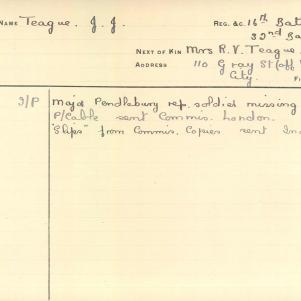 NAME Teague. J. J. REG. &c. 16th Bat
32nd Ba
NEXT OF KIN Mrs R. V. Teague.
ADDRESS 110 Gray St (off
City.
Majd Pendlebury rep. soldier missing
P/Cable sent Commis. London.
"Slips" from Commis, Copies sent